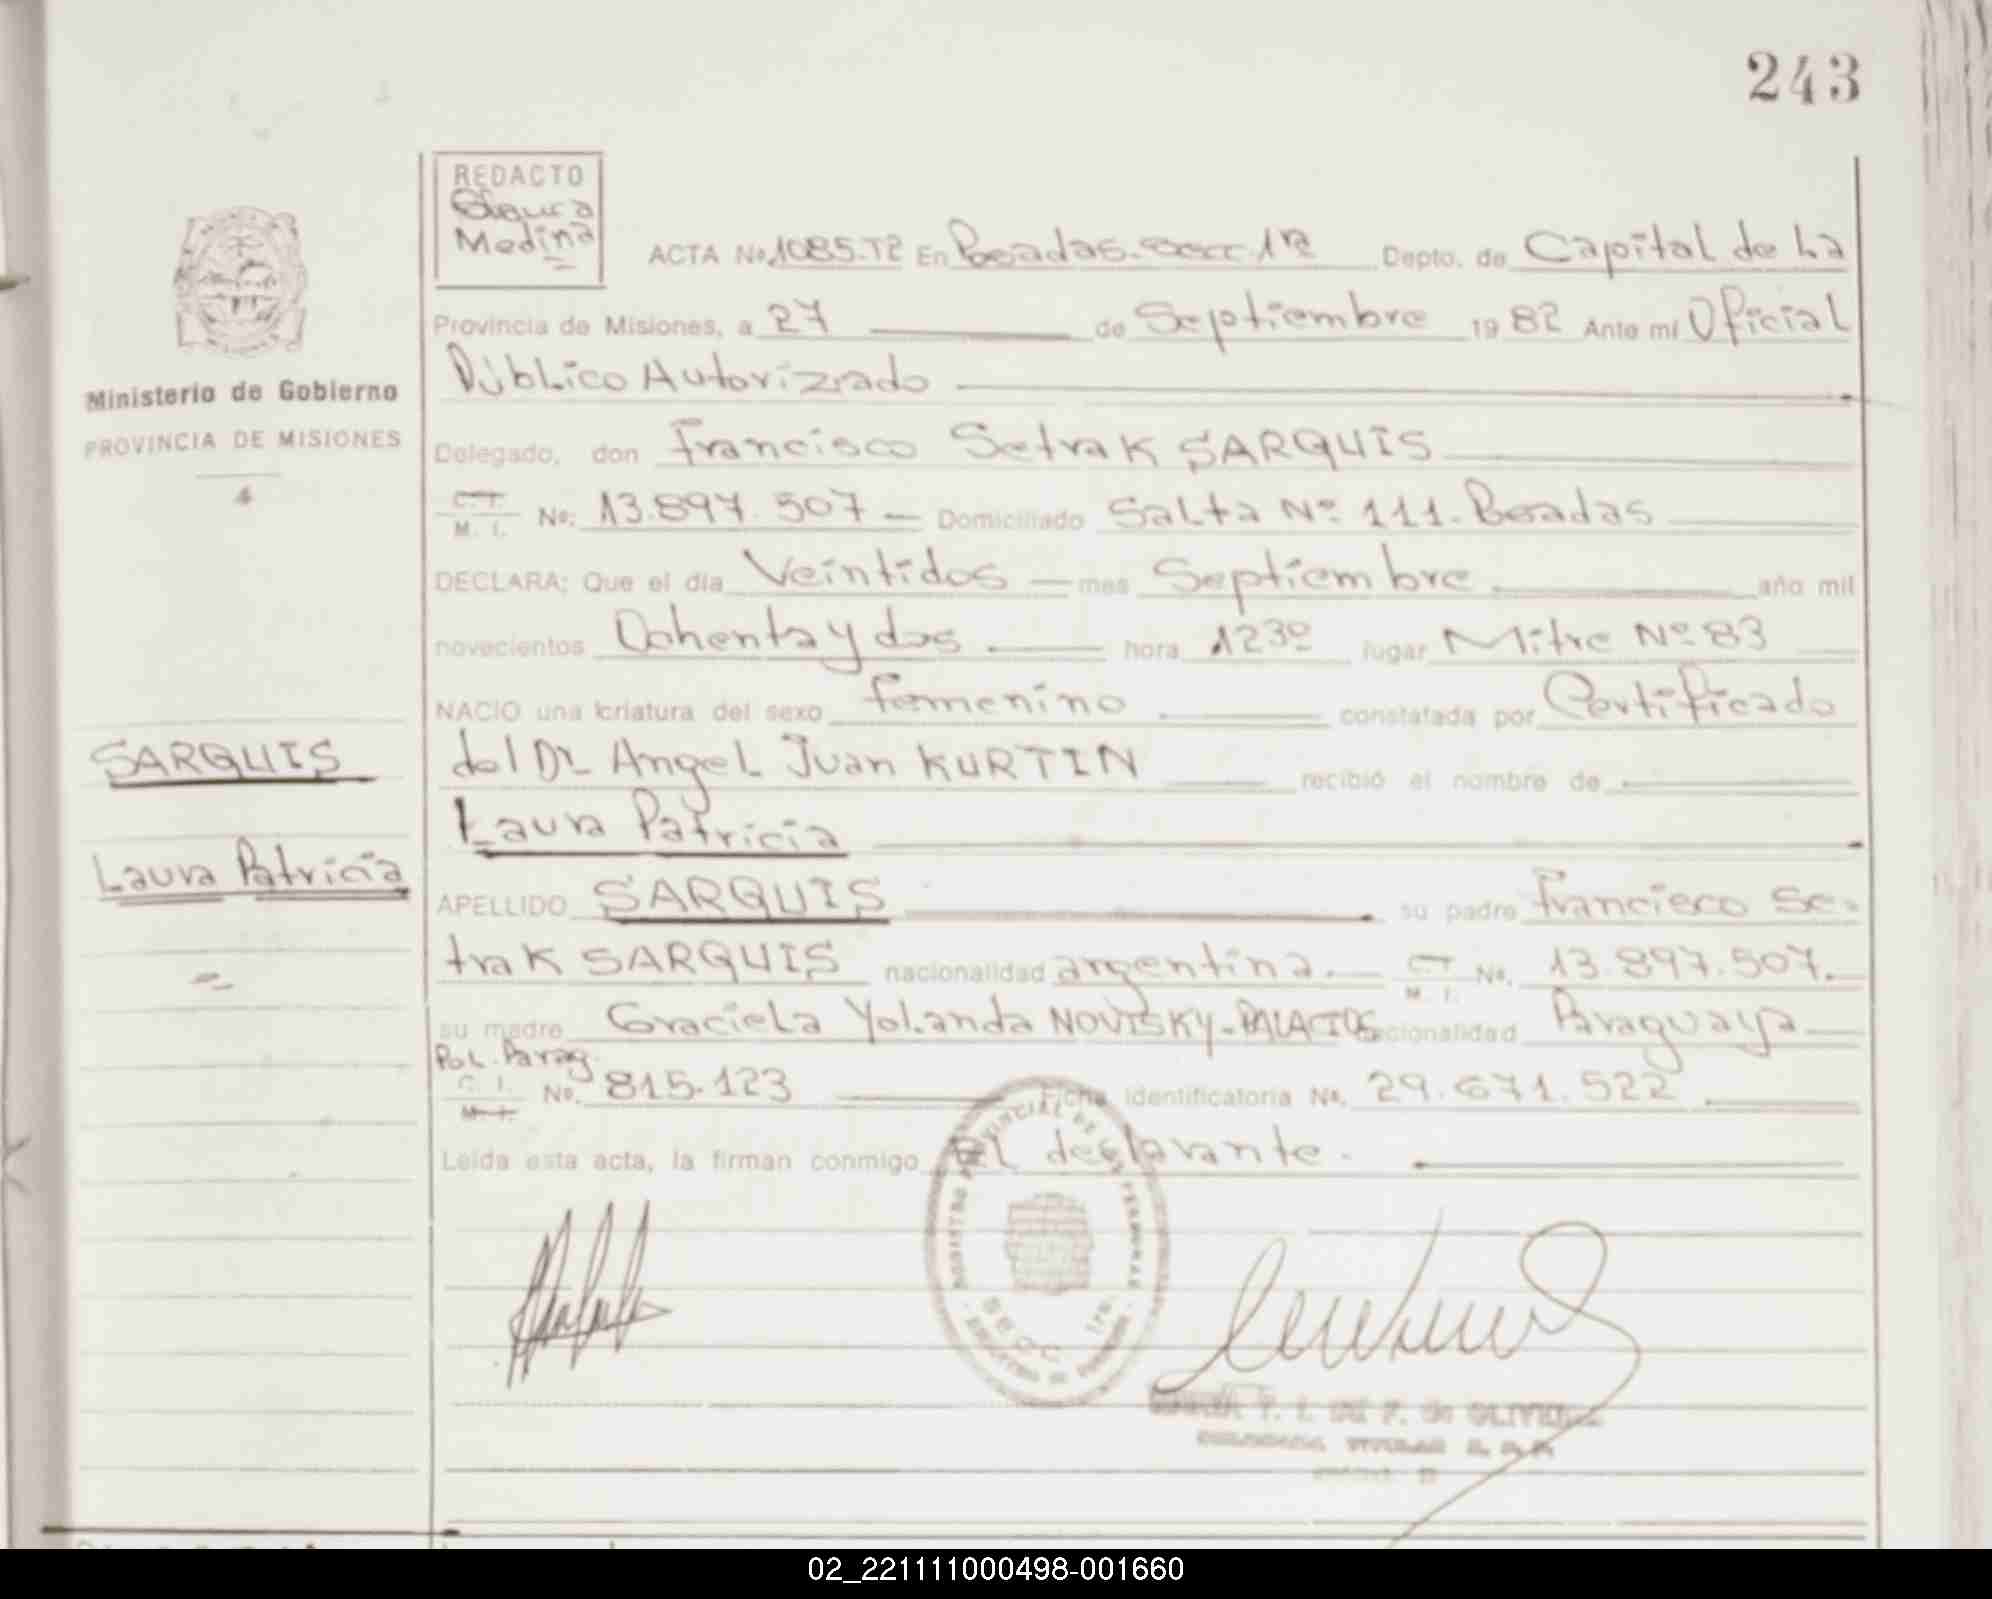 243
REDACTO
Segura
Medina
ACTA No 1085.T2 En Posadas. Secc. 1ra Depto. de Capital de La
Provincia de Misiones, a 27 de Septiembre 1982 Ante mí Oficial
Público Autorizado
Delegado, don Francisco Setrak SARQUIS
C. I.
M. I. No: 13.897.507 Domiciliado Salta Nº 111. Posadas
DECLARA; Que el día Veintidos mes Septiembre año mil
novecientos Ochenta y dos hora 1230 lugar Mitre Nº 83
NACIO una criatura del sexo femenino constatada por Certificado
del Dr Angel Juan KURTIN recibió el nombre de
Laura Patricia
APELLIDO SARQUIS su padre Francisco Se-
trak SARQUIS nacionalidad argentina. C. I.
M. I. No. 13.897.507.
su madre Graciela Yolanda NOVISKY-PALACIOS nacionalidad Paraguaya
Pol. Parag.
C. I.
M. I. No. 815.123 Ficha identificatoria No. 29.671.522
Leída esta acta, la firman conmigo El declarante.
Ministerio de Gobierno
PROVINCIA DE MISIONES
4
SARQUIS
Laura Patricia
SECC 1ra.
02_221111000498-001660